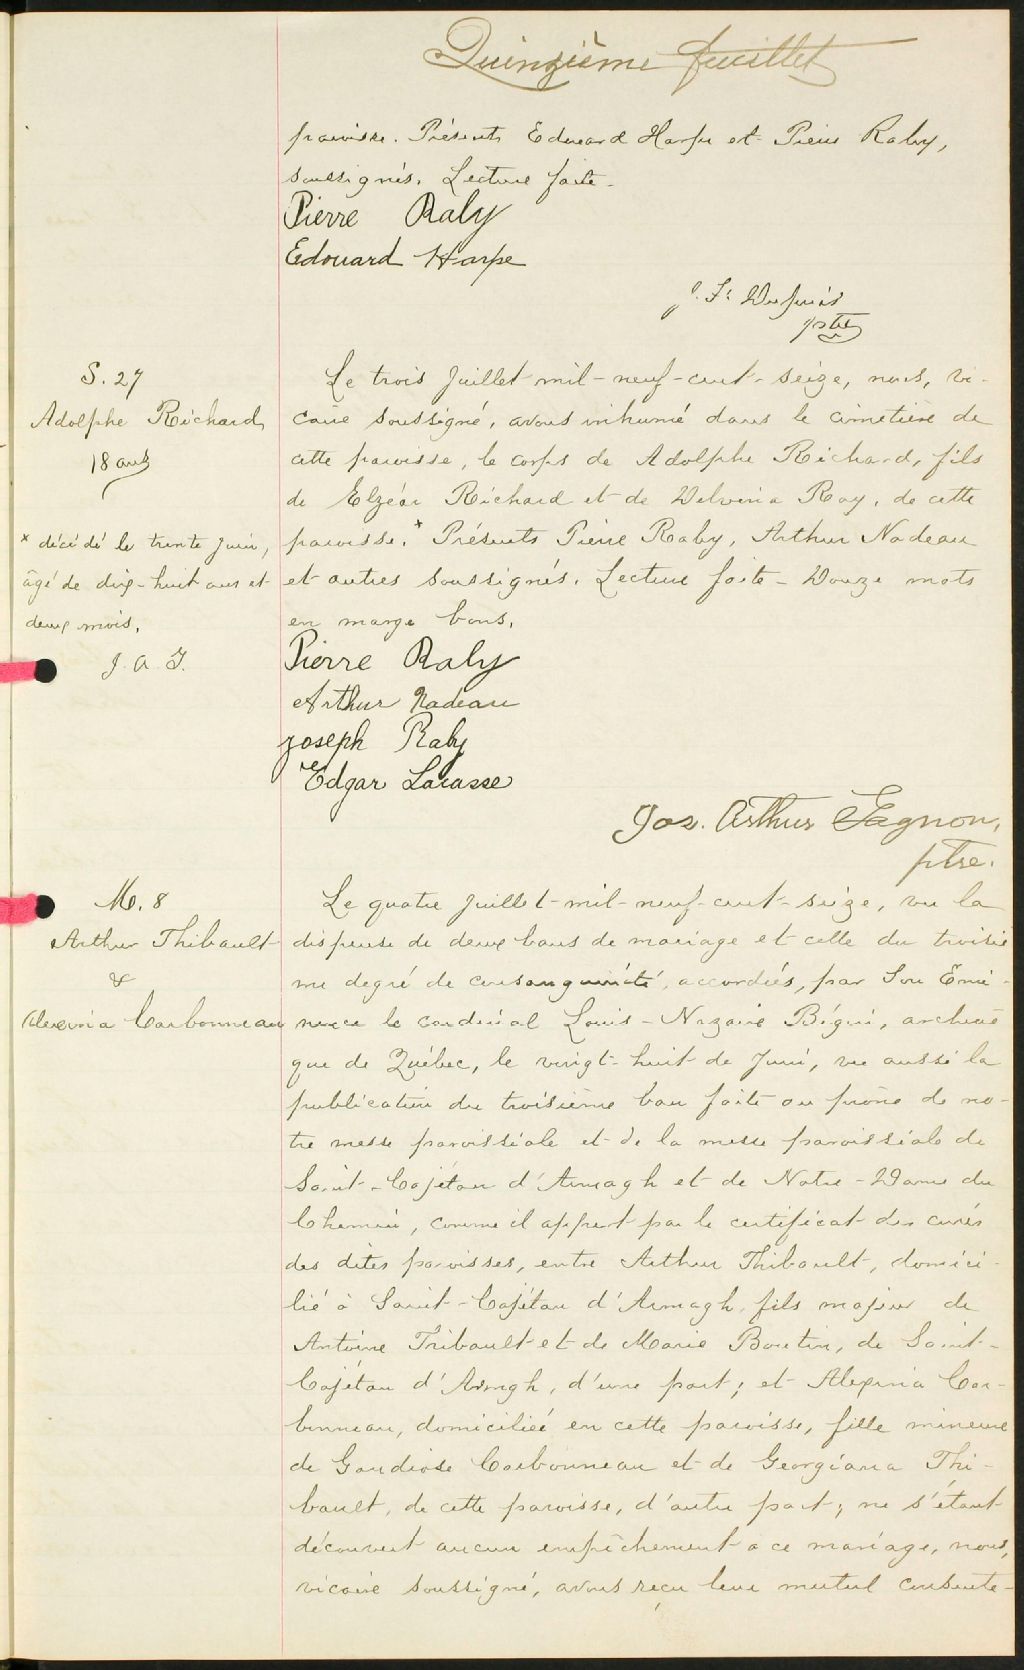 Quinzième feuillet
paroisse. Présents Edouard Harpe et Pierre Raby,
soussignés. Lecture faite.
Pierre Raby
Edouard Harpe
J. F. Dupuis
ptre
S. 27
Adolphe Richard
18 ans
Le trois Juillet mil-neuf-cent-seize, nous, vi-
caire soussigné, avons inhumé dans le cimetière de
cette paroisse, le corps de Adolphe Richard, fils
de Elzéar Richard et de Delvina Roy, de cette
paroisse. x Présents Pierre Raby, Arthur Nadeau
et autres soussignés. Lecture faite - Douze mots
en marge bons.
x décédé le trente Juin,
âgé de dix-huit ans et
deux mois.
J. A. G.
Pierre Raby
Arthur Nadeau
Joseph Raby
Edgar Lacasse
Jos. Arthur Gagnon,
ptre.
M. 8
Arthur Thibault
&
Alexina Carbonneau
Le quatre Juillet-mil-neuf-cent-seize, vu la
dispense de deux bans de mariage et celle du troisiè
me degré de consanguinité, accordées, par Son Émi-
nence le cardinal Louis-Nazaire Bégin, archevê
que de Québec, le vingt-huit de Juin, vu aussi la
publication du troisième ban faite au prône de no-
tre messe paroissiale et de la messe paroissiale de
Saint-Cajétan d'Armagh et de Notre-Dame du
Chemin, comme il appert par le certificat des curés
des dites paroisses, entre Arthur Thibault, domici-
lié à Saint-Cajétan d'Armagh, fils majeur de
Antoine Thibault et de Marie Boutin, de Saint-
Cajétan d'Armgh, d'une part; et Alexina Car-
bonneau, domiciliée en cette paroisse, fille mineure
de Gaudiose Carbonneau et de Georgiana Thi-
bault, de cette paroisse, d'autre part; ne s'étant
découvert aucun empêchement à ce mariage, nous,
vicaire soussigné, avons reçu leur mutuel consente-